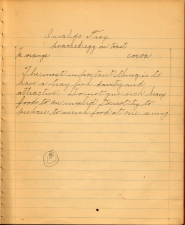 Invalid's Tray
poached egg on toast
½ orange cocoa
The most important thing is to
have a tray food dainty and
attractive. Do not give rich heavy
foods to an invalid. Do not try to
serve too much food at one serving